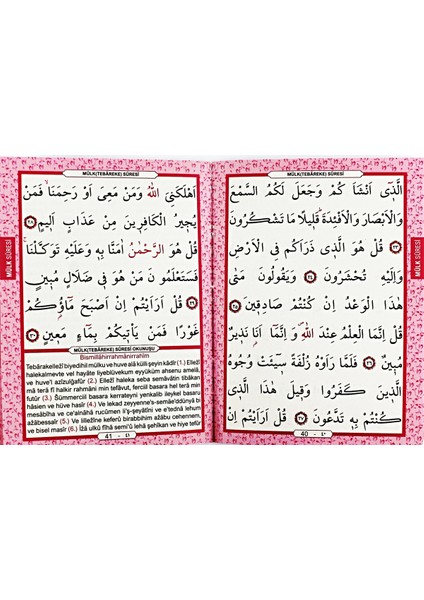 MÜLK(TEBÂREKE) SÛRESİ
اَلَّذ۪ٓي اَنْشَاَ كُمْ وَجَعَلَ لَكُمُ السَّمْعَ
وَالْاَبْصَارَ وَالْاَفْـِٔدَةَ قَل۪يلًا مَا تَشْكُرُونَ
﴿٢٣﴾ قُلْ هُوَ الَّذ۪ي ذَرَاَكُمْ فِي الْاَرْضِ
وَاِلَيْهِ تُحْشَرُونَ ﴿٢٤﴾ وَيَقُولُونَ مَتٰى
هٰذَا الْوَعْدُ اِنْ كُنْتُمْ صَادِق۪ينَ ﴿٢٥﴾
قُلْ اِنَّمَا الْعِلْمُ عِنْدَ اللّٰهِ وَ اِنَّمَٓا اَنَا۬ نَذ۪يرٌ
مُب۪ينٌ ﴿٢٦﴾ فَلَمَّا رَاَوْهُ زُلْفَةً س۪ٓيـَٔتْ وُجُوهُ
الَّذ۪ينَ كَفَرُوا وَق۪يلَ هٰذَا الَّذ۪ي
كُنْتُمْ بِه۪ تَدَّعُونَ ﴿٢٧﴾ قُلْ اَرَاَيْتُمْ اِنْ
40 - ٤٠
MÜLK SÛRESİ
MÜLK(TEBÂREKE) SÛRESİ
اَهْلَكَنِيَ اللّٰهُ وَمَنْ مَعِيَ اَوْ رَحِمَنَاۙ فَمَنْ
يُج۪يرُ الْكَافِر۪ينَ مِنْ عَذَابٍ اَل۪يمٍ ﴿٢٨﴾
قُلْ هُوَ الرَّحْمٰنُ اٰمَنَّا بِه۪ وَعَلَيْهِ تَوَكَّلْنَاۚ
فَسَتَعْلَمُونَ مَنْ هُوَ ف۪ي ضَلَالٍ مُب۪ينٍ
﴿٢٩﴾ قُلْ اَرَاَيْتُمْ اِنْ اَصْبَحَ مَٓاؤُ۬كُمْ
غَوْرًا فَمَنْ يَاْت۪يكُمْ بِمَٓاءٍ مَع۪ينٍ ﴿٣٠﴾
MÜLK(TEBÂREKE) SÛRESİ OKUNUŞU
Bismillâhirrahmânirrahîm
Tebârakellezî biyedihil mülku ve huve alâ külli şeyin kadîr (1.) Ellezî
halekalmevte vel hayâte liyeblüvekum eyyüküm ahsenu amelâ,
ve huve'l azîzulğafûr (2.) Ellezî haleka seba semâvâtin tibâkan
mâ terâ fî halkır rahmâni min tefâvut, ferciıl basara hel terâ min
futûr (3.) Sümmerciıl basara kerrateyni yenkalib ileykel basaru
hâsien ve hüve hasîr (4.) Ve lekad zeyyenne's-semâe'ddünyâ bi
mesâbîha ve ce'alnâhâ rucûmen li'ş-şeyâtîni ve e'tednâ lehum
azâbessaîr (5.) Ve lillezîne keferû birabbihim azâbu cehennem,
ve bisel masîr (6.) İzâ ulkû fîhâ semi'û lehâ şehîkan ve hiye tefûr
41 - ٤١
MÜLK SÛRESİ